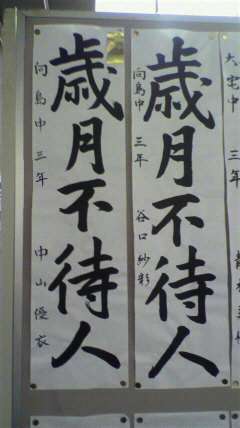 大宅中
三年
歳月不待人
向島中 三年 谷口紗彩
歳月不待人
向島中 三年 中山優衣